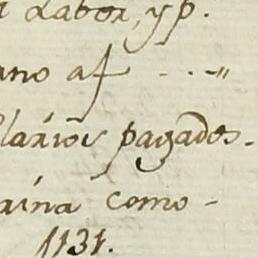 Labor, y p.
no af - . . - "
larios pagados.
rina como -
1131.